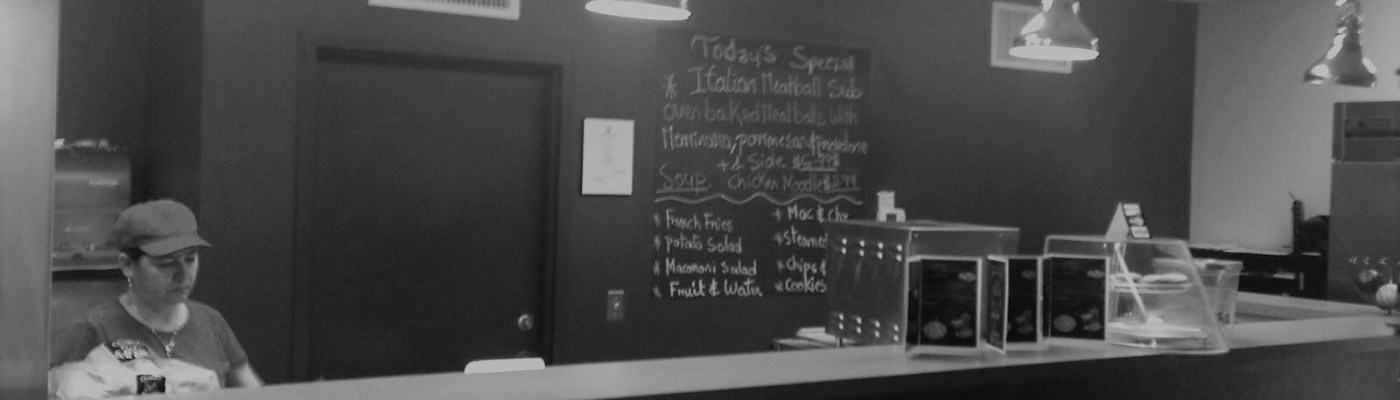 Today's Special
* Italian Meatball Sub
oven baked Meatballs with
Marinara, parmesan & provolone
+ 1 Side $5.99
Soup. Chicken Noodle $2.99
* French Fries
* potato Salad
* Macaroni Salad
* Fruit & Water
* Mac & Che
* steamed
* chips &
* Cookies